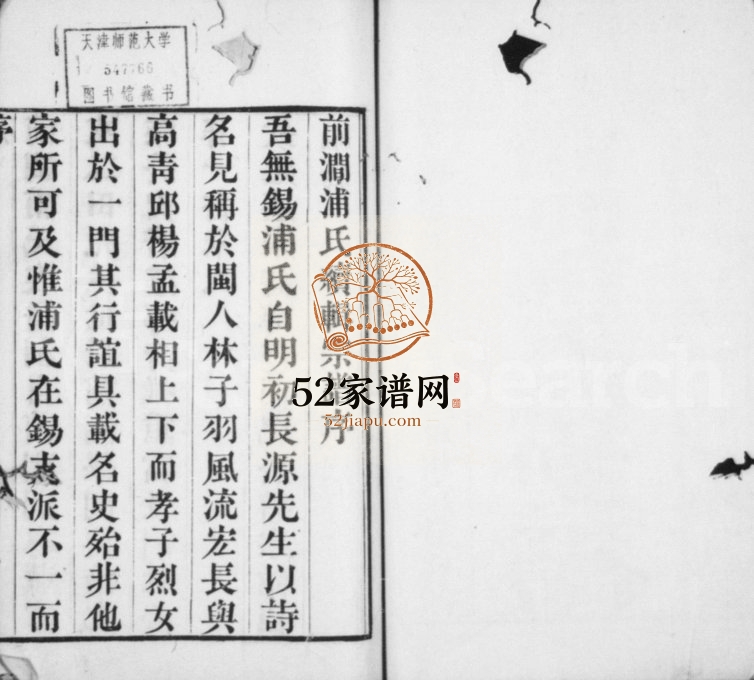 天津师范大学
547766
图书馆藏书
前澗浦氏續輯宗譜序
吾無錫浦氏自明初長源先生以詩
名見稱於閩人林子羽風流宏長與
高青邱楊孟載相上下而孝子烈女
出於一門其行誼具載名史殆非他
家所可及惟浦氏在錫支派不一而
序
52家谱网
52jiapu.com
Search